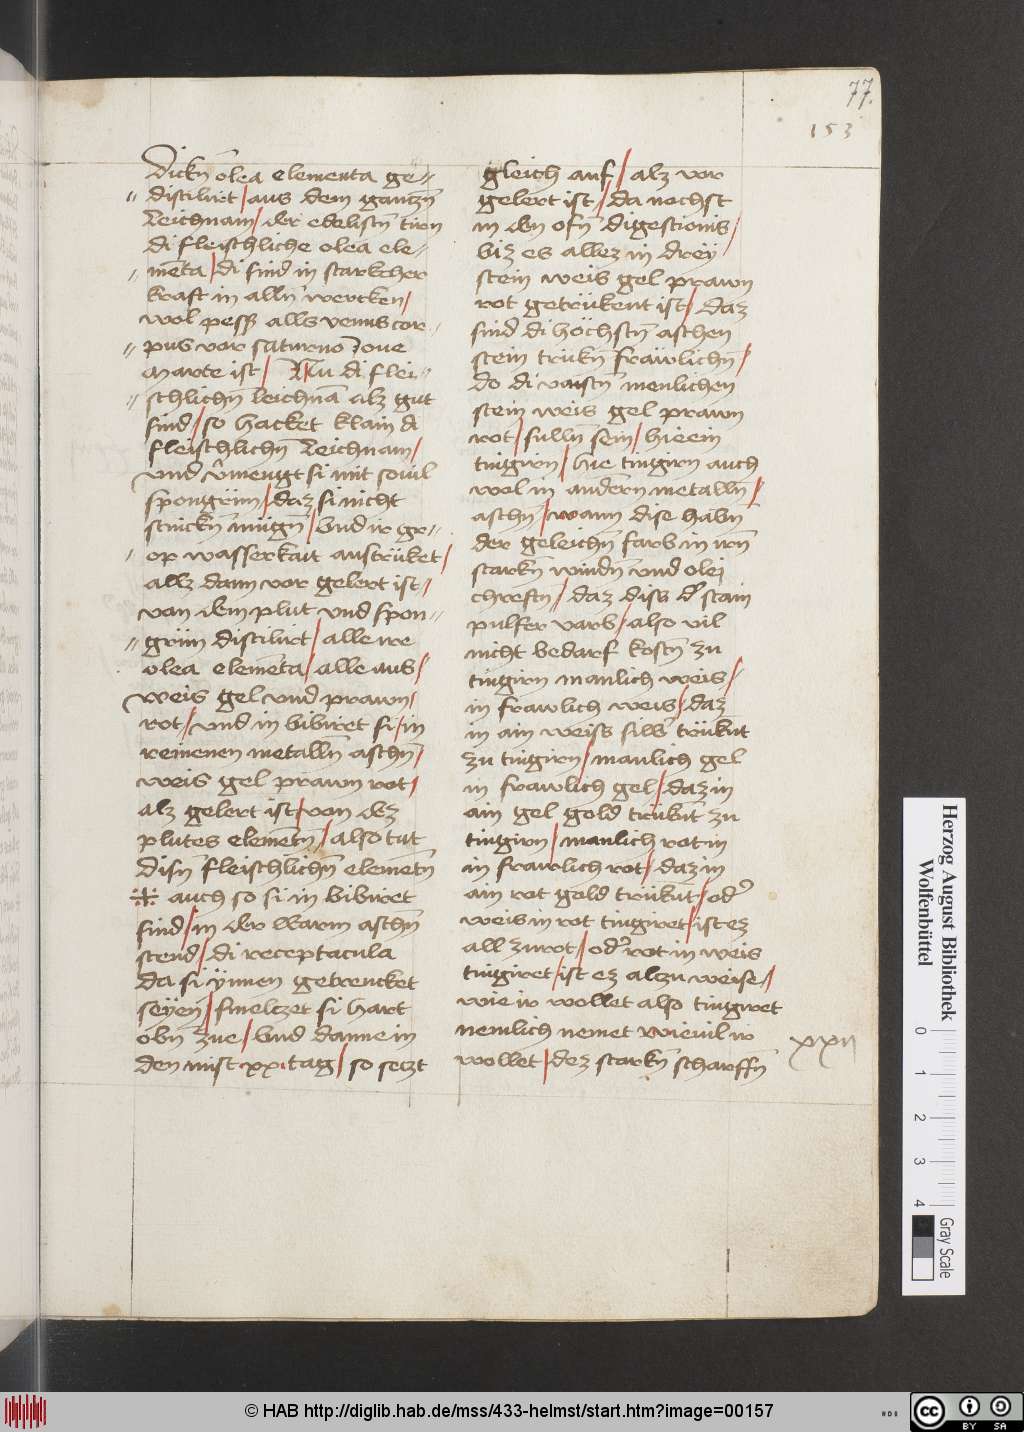 77.
153
Dickn̄ olea elementa ge=
distilirt / aus dem gantzn̄
Leichnam / der edelistn̄ tirn
di fleischliche olea ele=
mēta / di sind in starkcher
kraft in alln̄ wercken /
wol pess alls venus cor=
pus vor saturno Joue
Marte ist / Nu di flei=
schlichn̄ leichnā alz gut
sind / so hacket klain di
fleischlichn̄ Leichnam /
vnd v̂mengt si mit souil
spongrün / daz si nicht
smickn̄ mügn̄ / vnd ir gr=
op wasserkait austrüket /
allz dann vor gelert ist /
van dem plut vnd spon=
grün distilirt / alle ire
olea elemēta / alle aus /
weis gel vnd prawn /
rot / vnd in bibiret si / in
reinenen metalln̄ aschn̄ /
weis gel prawn rot /
alz gelert ist / van dez
plutes elemētn̄ / also tut
disn̄ fleischlichn̄ elemētn̄
auch so si in bibiret
sind / in der warm aschn̄
stend / di receptacula
da si ÿnnen getrencket
seÿen / smelczet si hart
obn̄ zue / vnd danne in
den mist xx. tag / so seczt
gleich auf / alz vor
gelert ist / da nechst
in den ofn̄ digestionis /
biz es allez in dreÿ
stein weis gel prawn
rot getrükent ist / daz
sind di höchstn̄ aschen
stein trükn̄ fräwlichn̄ /
do di vaistn̄ menlichen
stein weis gel prawn
rot / sulln̄ sein / hie ein
tingirn / hie tingirn auch
wol in andern metalln̄ /
aschn̄ / wann dise habn̄
der geleichn̄ farb in irn̄
starkn̄ windn̄ vnd olei
chreftn̄ / daz diss d' stain
pulfer varb / also vil
nicht bedarf kostn̄ zu
tingirn manlich weis /
in frawlich weis / daz
in ain weiss silb' trükn̄t
zu tingirn / manlich gel
in frawlich gel / daz in
ain gel gold trükn̄t zu
tingirn / manlich rot in
in frawlich rot / daz in
ain rot gold trükn̄t / od'
weis in rot tingiret / ist ez
all zu rot / od' rot in weis
tingiret / ist ez alzu weise /
wie ir wollet also tingiret
nemlich nemet wieuil ir
wollet / dez starkn̄ scharffn̄
xxii
Herzog August Bibliothek
Wolfenbüttel
0 1 2 3 4
Gray Scale
© HAB http://diglib.hab.de/mss/433-helmst/start.htm?image=00157
HAB
cc BY SA